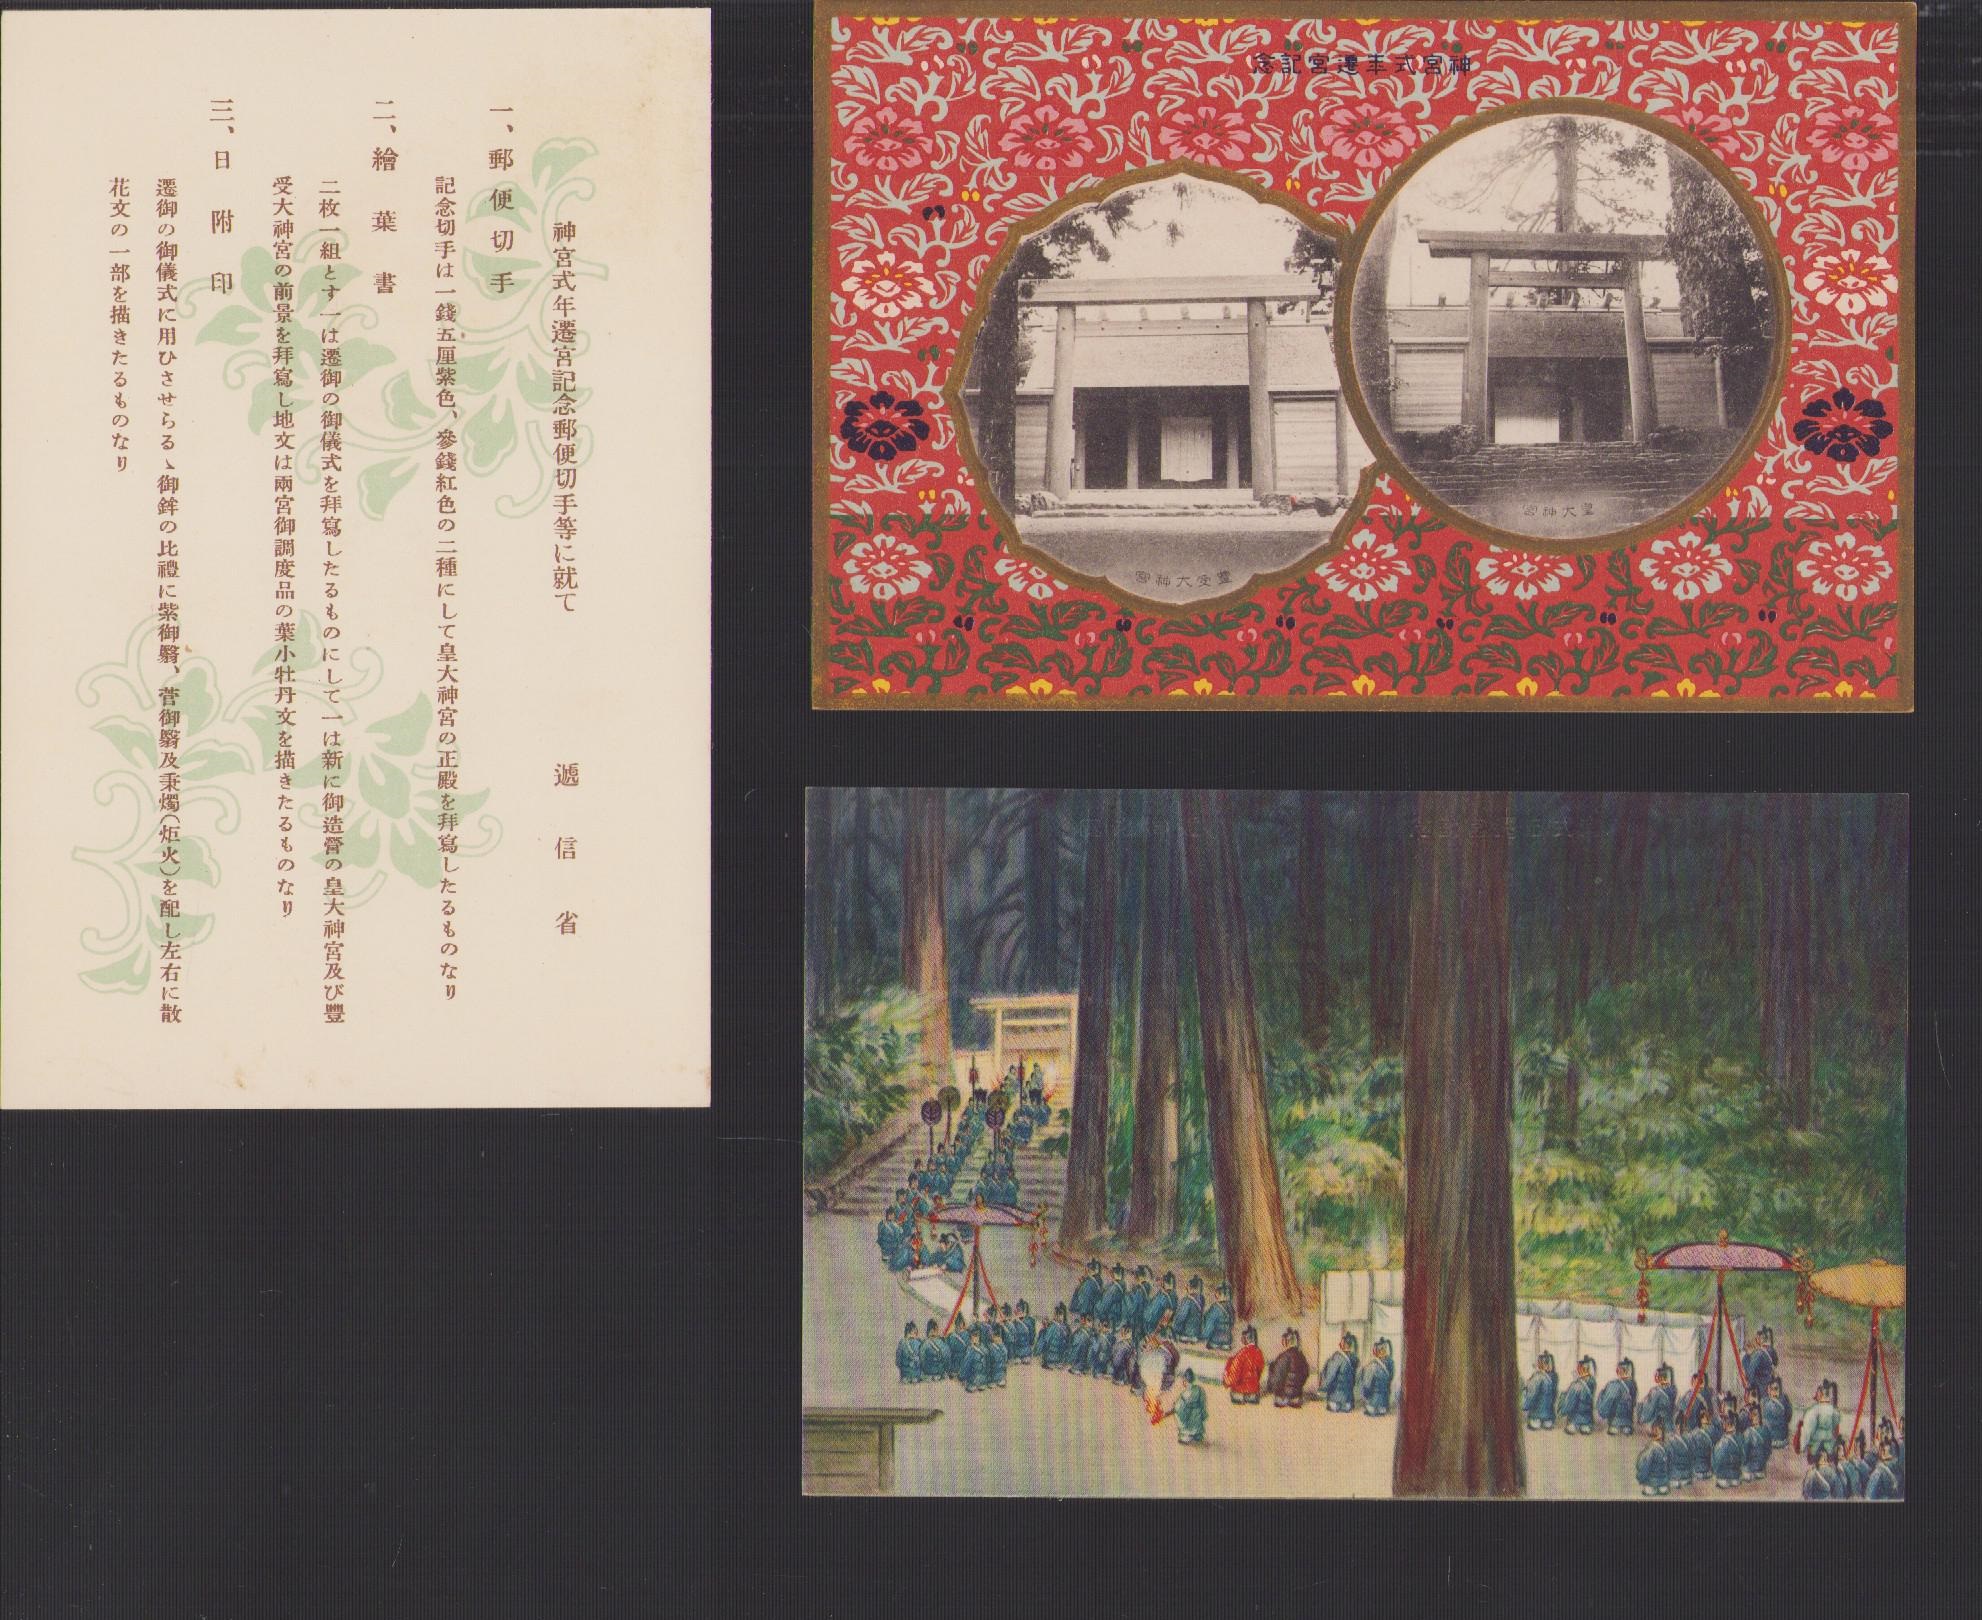 神宮式年遷宮記念郵便切手等に就て　遞信省
一、郵便切手
記念切手は一錢五厘紫色、參錢紅色の二種にして皇大神宮の正殿を拜寫したるものなり
二、繪葉書
二枚一組とす一は遷御の御儀式を拜寫したるものにして一は新に御造營の皇大神宮及び豐
受大神宮の前景を拜寫し地文は兩宮御調度品の葉小牡丹文を描きたるものなり
三、日附印
遷御の御儀式に用ひさせらるゝ御鉾の比禮に紫御翳、菅御翳及秉燭(炬火)を配し左右に散
花文の一部を描きたるものなり
念記宮遷年式宮神
宮神大皇
宮神大受豐